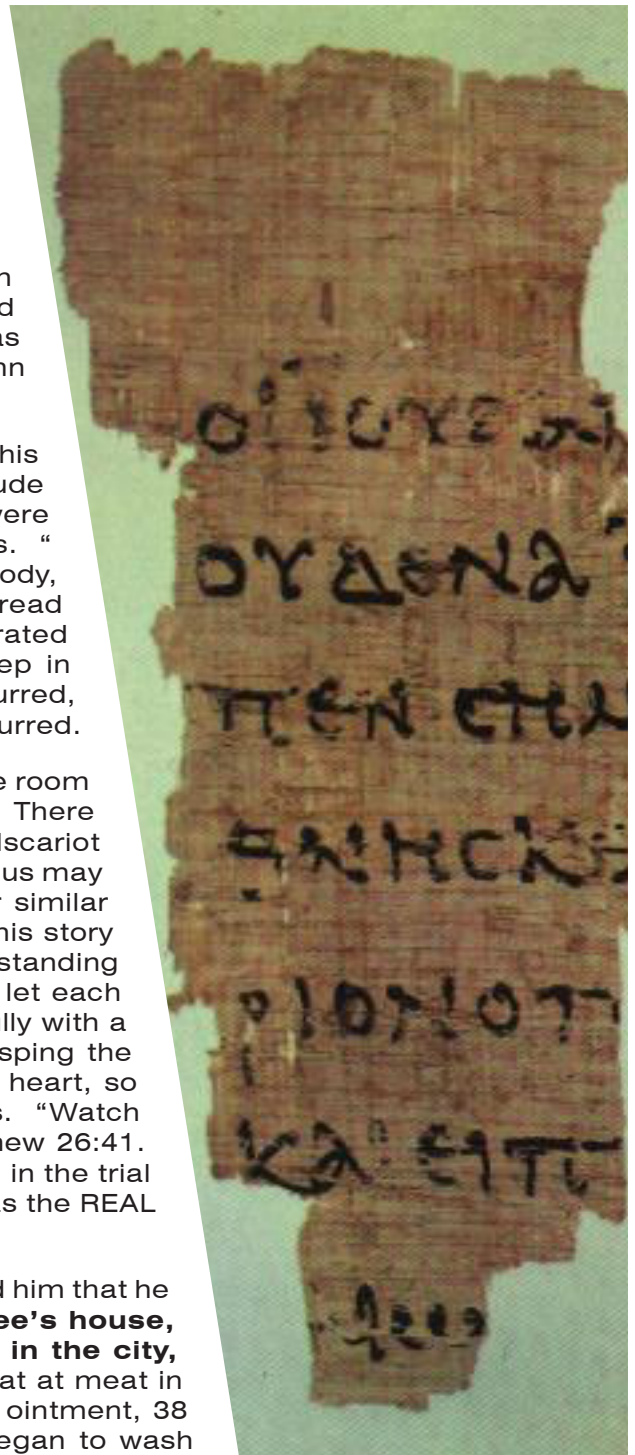 n
d
as
nn
his
ude
were
s. “
ody,
read
rated
ep in
urred,
urred.
e room
There
Iscariot
us may
r similar
his story
standing
let each
ully with a
sping the
heart, so
s. “Watch
hew 26:41.
in the trial
as the REAL
d him that he
ee’s house,
in the city,
at at meat in
ointment, 38
egan to wash
ΟΥΔΕΝΑ
ΠΕΝ CΗΜ
ΘΝΗCΚ
ΡΙΟΝ Ο Π
ΚΑΙ ΕΙΠ